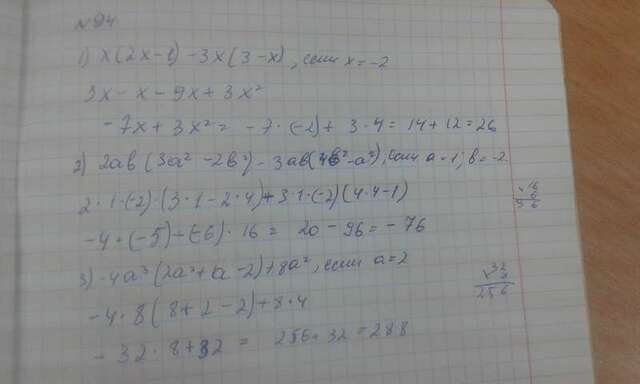 №94
1) x(2x-1)-3x(3-x), если x=-2
3x-x-9x+3x²
-7x+3x²= -7·(-2)+3·4=14+12=26
2) 2ab(3a²-2b²)-3ab(4b²-a²), если a=1; b=-2
2·1·(-2)·(3·1-2·4)+3·1·(-2)(4·4-1)
-4·(-5)-(-6)·16= 20-96=-76
16
6
96
3) -4a³(2a²+a-2)+8a², если a=2
-4·8(8+2-2)+8·4
32
8
256
-32·8+32= 256+32=288